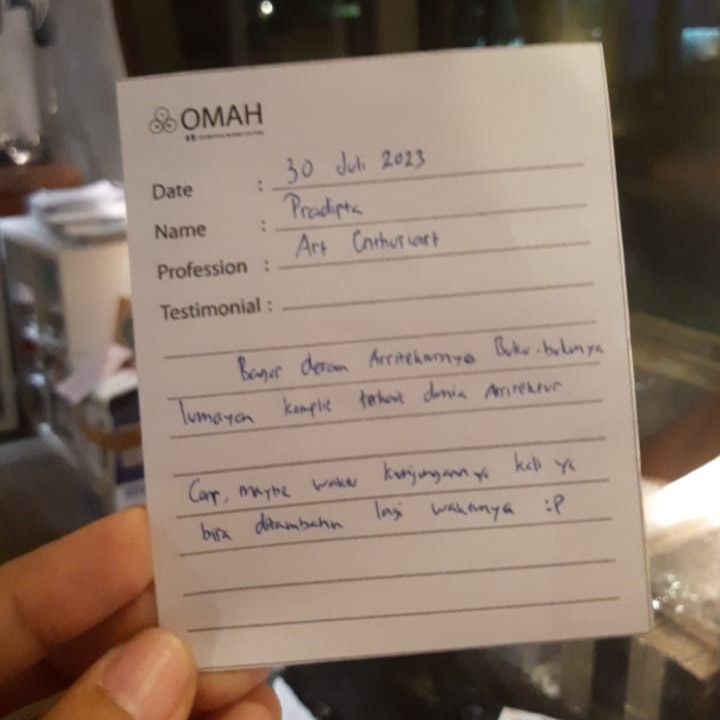 OMAH
Date : 30 Juli 2023
Name : Pradipta
Profession : Art Enthusiast
Testimonial :
Bagus desain Arsitekturnya Buku-bukunya
lumayan komplit terkait dunia Arsitektur.
Cuma, maybe waktu kunjungannya kali ya
bisa ditambahin lagi waktunya :P